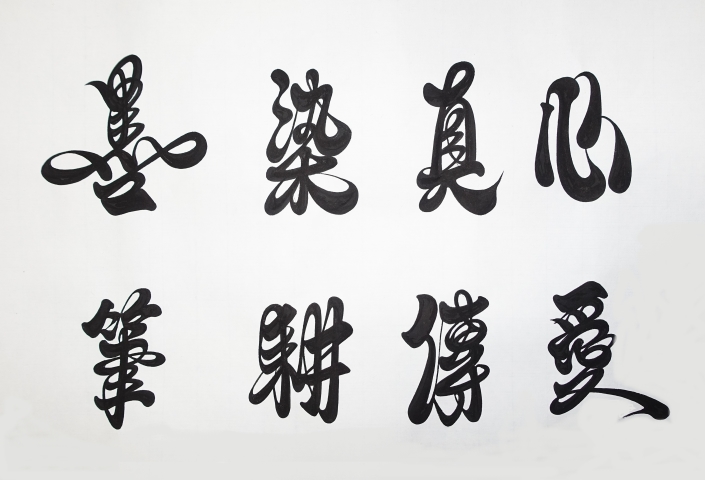 墨染真心
筆耕傳愛